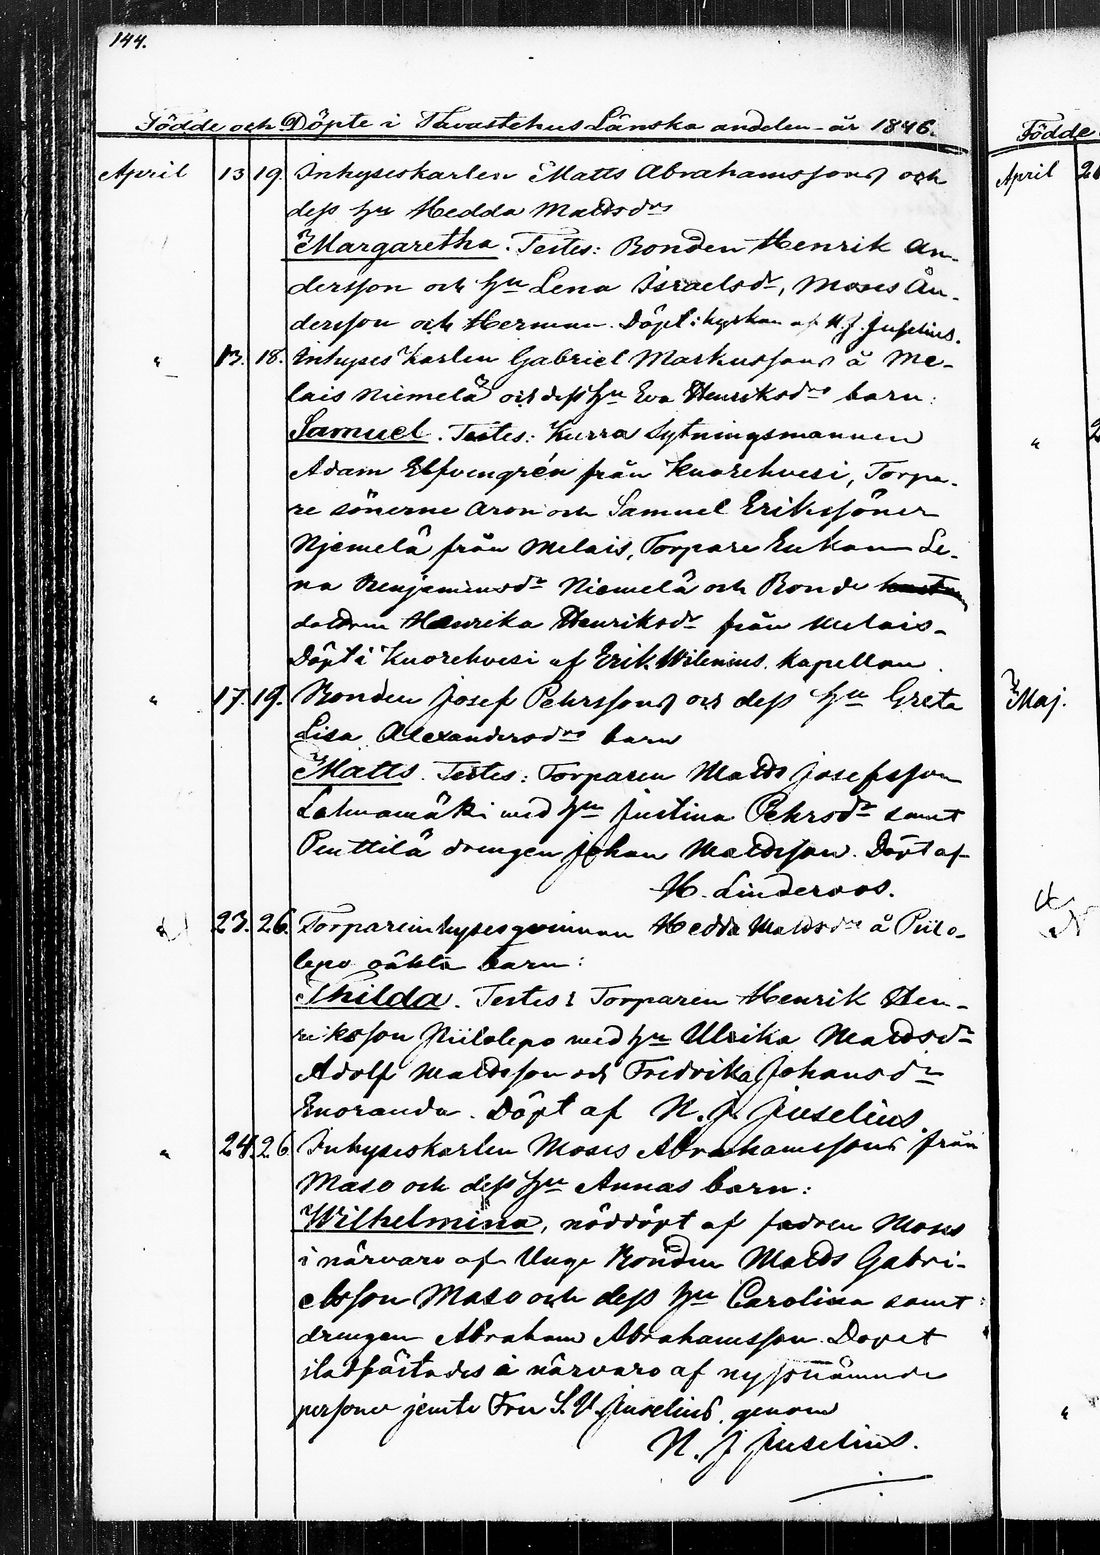 144.
Födde och Döpte i Tavastehus Länska andelen år 1846.
April 13 19. Inhyseskarlen Matts Abrahamssons och
dess hu Hedda Mattsdrs
Margaretha. Testes: Bonden Henrik An-
dersson och hu Lena Israelsdr, Moses An-
dersson och Herman. Döpt i kyrkan af N. J. Juselius.
" 13. 18. Inhyses Karlen Gabriel Markussons å Me-
lais Niemelä och dess hu Eva Henriksdrs barn:
Samuel. Testes: Kurra Sytningsmannen
Adam Elfvengrén från Kuorehvesi, Torpa-
re sönerne Aron och Samuel Erikssöner
Njemelä från Melais, Torpare Enkan Le-
na Benjaminsdr Niemelä och Bonde
dottren Henrika Henriksdr från Melais-
Döpt i Kuorehvesi af Erik Wilenius, Kapellan.
" 17. 19. Bonden Josef Pehrssons och dess hu Greta
Lisa Alexandersdrs barn
Matts. Testes: Torparen Matts Josefsson
med hu Justina Pehrsdr samt
Penttilä drengen Johan Mattsson. Döpt af
H. Linderoos.
" 23. 26. Torpareinhysesqvinnan Hedda Mattsdrs å Piilo-
lepo oäkta barn:
Thilda. Testes: Torparen Henrik Hen-
riksson Piilolepo med hu Ulrika Mattsdr
Adolf Mattsson och Fredrika Johansdr
Enoranda. Döpt af N. J. Juselius.
" 24. 26 Inhyseskarlen Moses Abrahamssons från
Maso och dess hu Annas barn:
Wilhelmina, nöddöpt af fadren Moses
i närvaro af Unge Bonden Matts Gabri-
elsson Maso och dess hu Carolina samt
drengen Abraham Abrahamsson. Dopet
stadfästades i närvaro af nyssnämnde
personer jemte Fru S. U. Juselius, genom
N. J. Juselius.
Födde
April 26
"
Maj.
"